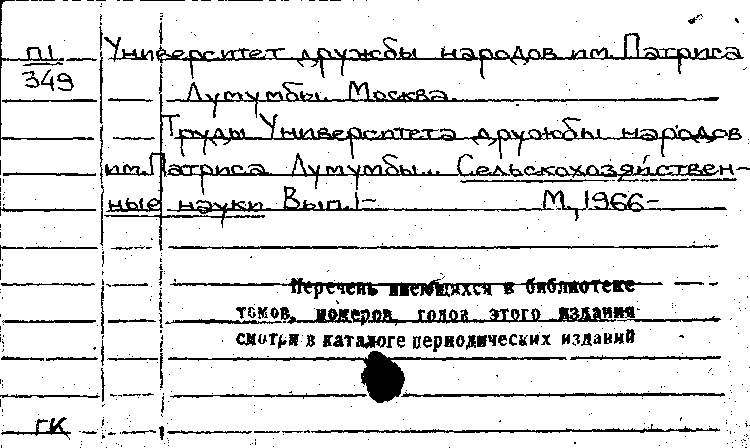 П1
349
Университет дружбы народов им. Патриса
Лумумбы. Москва.
Труды Университета дружбы народов
им. Патриса Лумумбы... Сельскохозяйствен-
ные науки Вып. 1-    М., 1966-
Перечень имеющихся в библиотеке
томов, номеров, годов этого издания
смотри в каталоге периодических изданий
ГК